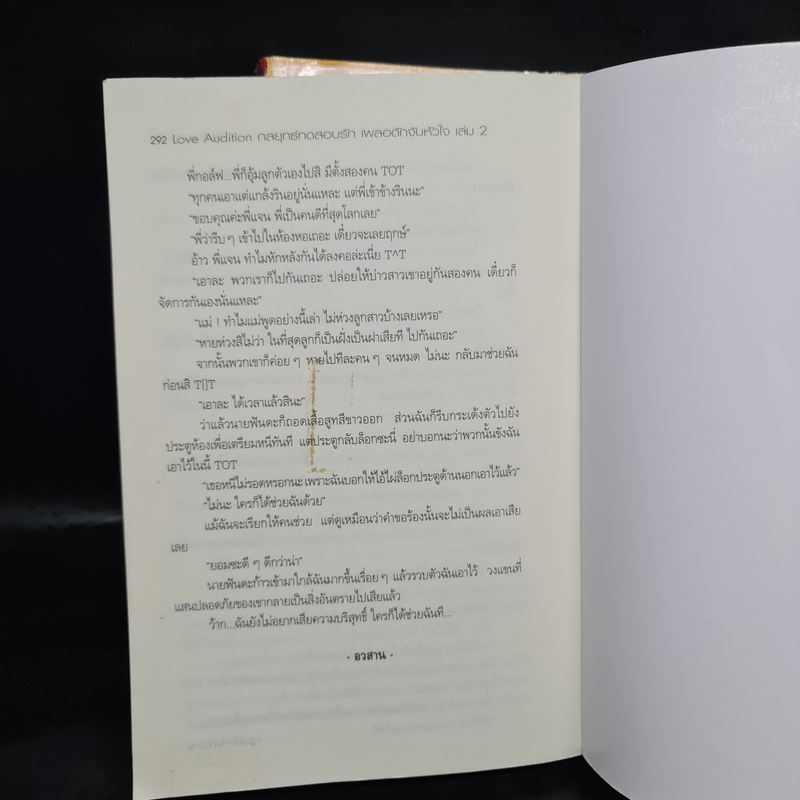 292 Love Audition กลยุทธ์ทดสอบรัก เผลอดักจับหัวใจ เล่ม 2
พี่กอล์ฟ...พี่ก็อุ้มลูกตัวเองไปสิ มีตั้งสองคน TOT
“ทุกคนเอาแต่แกล้งรินอยู่นั่นแหละ แต่พี่เข้าข้างรินนะ”
“ขอบคุณค่ะพี่แจน พี่เป็นคนดีที่สุดโลกเลย”
“พี่ว่ารีบๆ เข้าไปในห้องหอเถอะ เดี๋ยวจะเลยฤกษ์”
อ้าว พี่แจน ทำไมหักหลังกันได้ลงคอล่ะเนี่ย T^T
“เอาละ พวกเราก็ไปกันเถอะ ปล่อยให้บ่าวสาวเขาอยู่กันสองคน เดี๋ยวก็
จัดการกันเองนั่นแหละ”
“แม่ ! ทำไมแม่พูดอย่างนี้เล่า ไม่ห่วงลูกสาวบ้างเลยเหรอ”
“หายห่วงสิไม่ว่า ในที่สุดลูกก็เป็นฝั่งเป็นฝาเสียที ไปกันเถอะ”
จากนั้นพวกเขาก็ค่อยๆ หายไปทีละคนๆ จนหมด ไม่นะ กลับมาช่วยฉัน
ก่อนสิ T[]T
“เอาละ ได้เวลาแล้วสินะ”
ว่าแล้วนายฟันดะก็ถอดเสื้อสูทสีขาวออก ส่วนฉันก็รีบกระเด้งตัวไปยัง
ประตูห้องเพื่อเตรียมหนีทันที แต่ประตูกลับล็อกซะนี่ อย่าบอกนะว่าพวกนั้นขังฉัน
เอาไว้ในนี้ TOT
“เธอหนีไม่รอดหรอกนะ เพราะฉันบอกให้ไอ้ไผ่ล็อกประตูด้านนอกเอาไว้แล้ว”
“ไม่นะ ใครก็ได้ช่วยฉันด้วย”
แม้ฉันจะเรียกให้คนช่วย แต่ดูเหมือนว่าคำขอร้องนั้นจะไม่เป็นผลเอาเสีย
เลย
“ยอมซะดีๆ ดีกว่าน่า”
นายฟันดะก้าวเข้ามาใกล้ฉันมากขึ้นเรื่อยๆ แล้วรวบตัวฉันเอาไว้ วงแขนที่
แสนปลอดภัยของเขากลายเป็นสิ่งอันตรายไปเสียแล้ว
ว้าก...ฉันยังไม่อยากเสียความบริสุทธิ์ ใครก็ได้ช่วยฉันที...
- อวสาน -